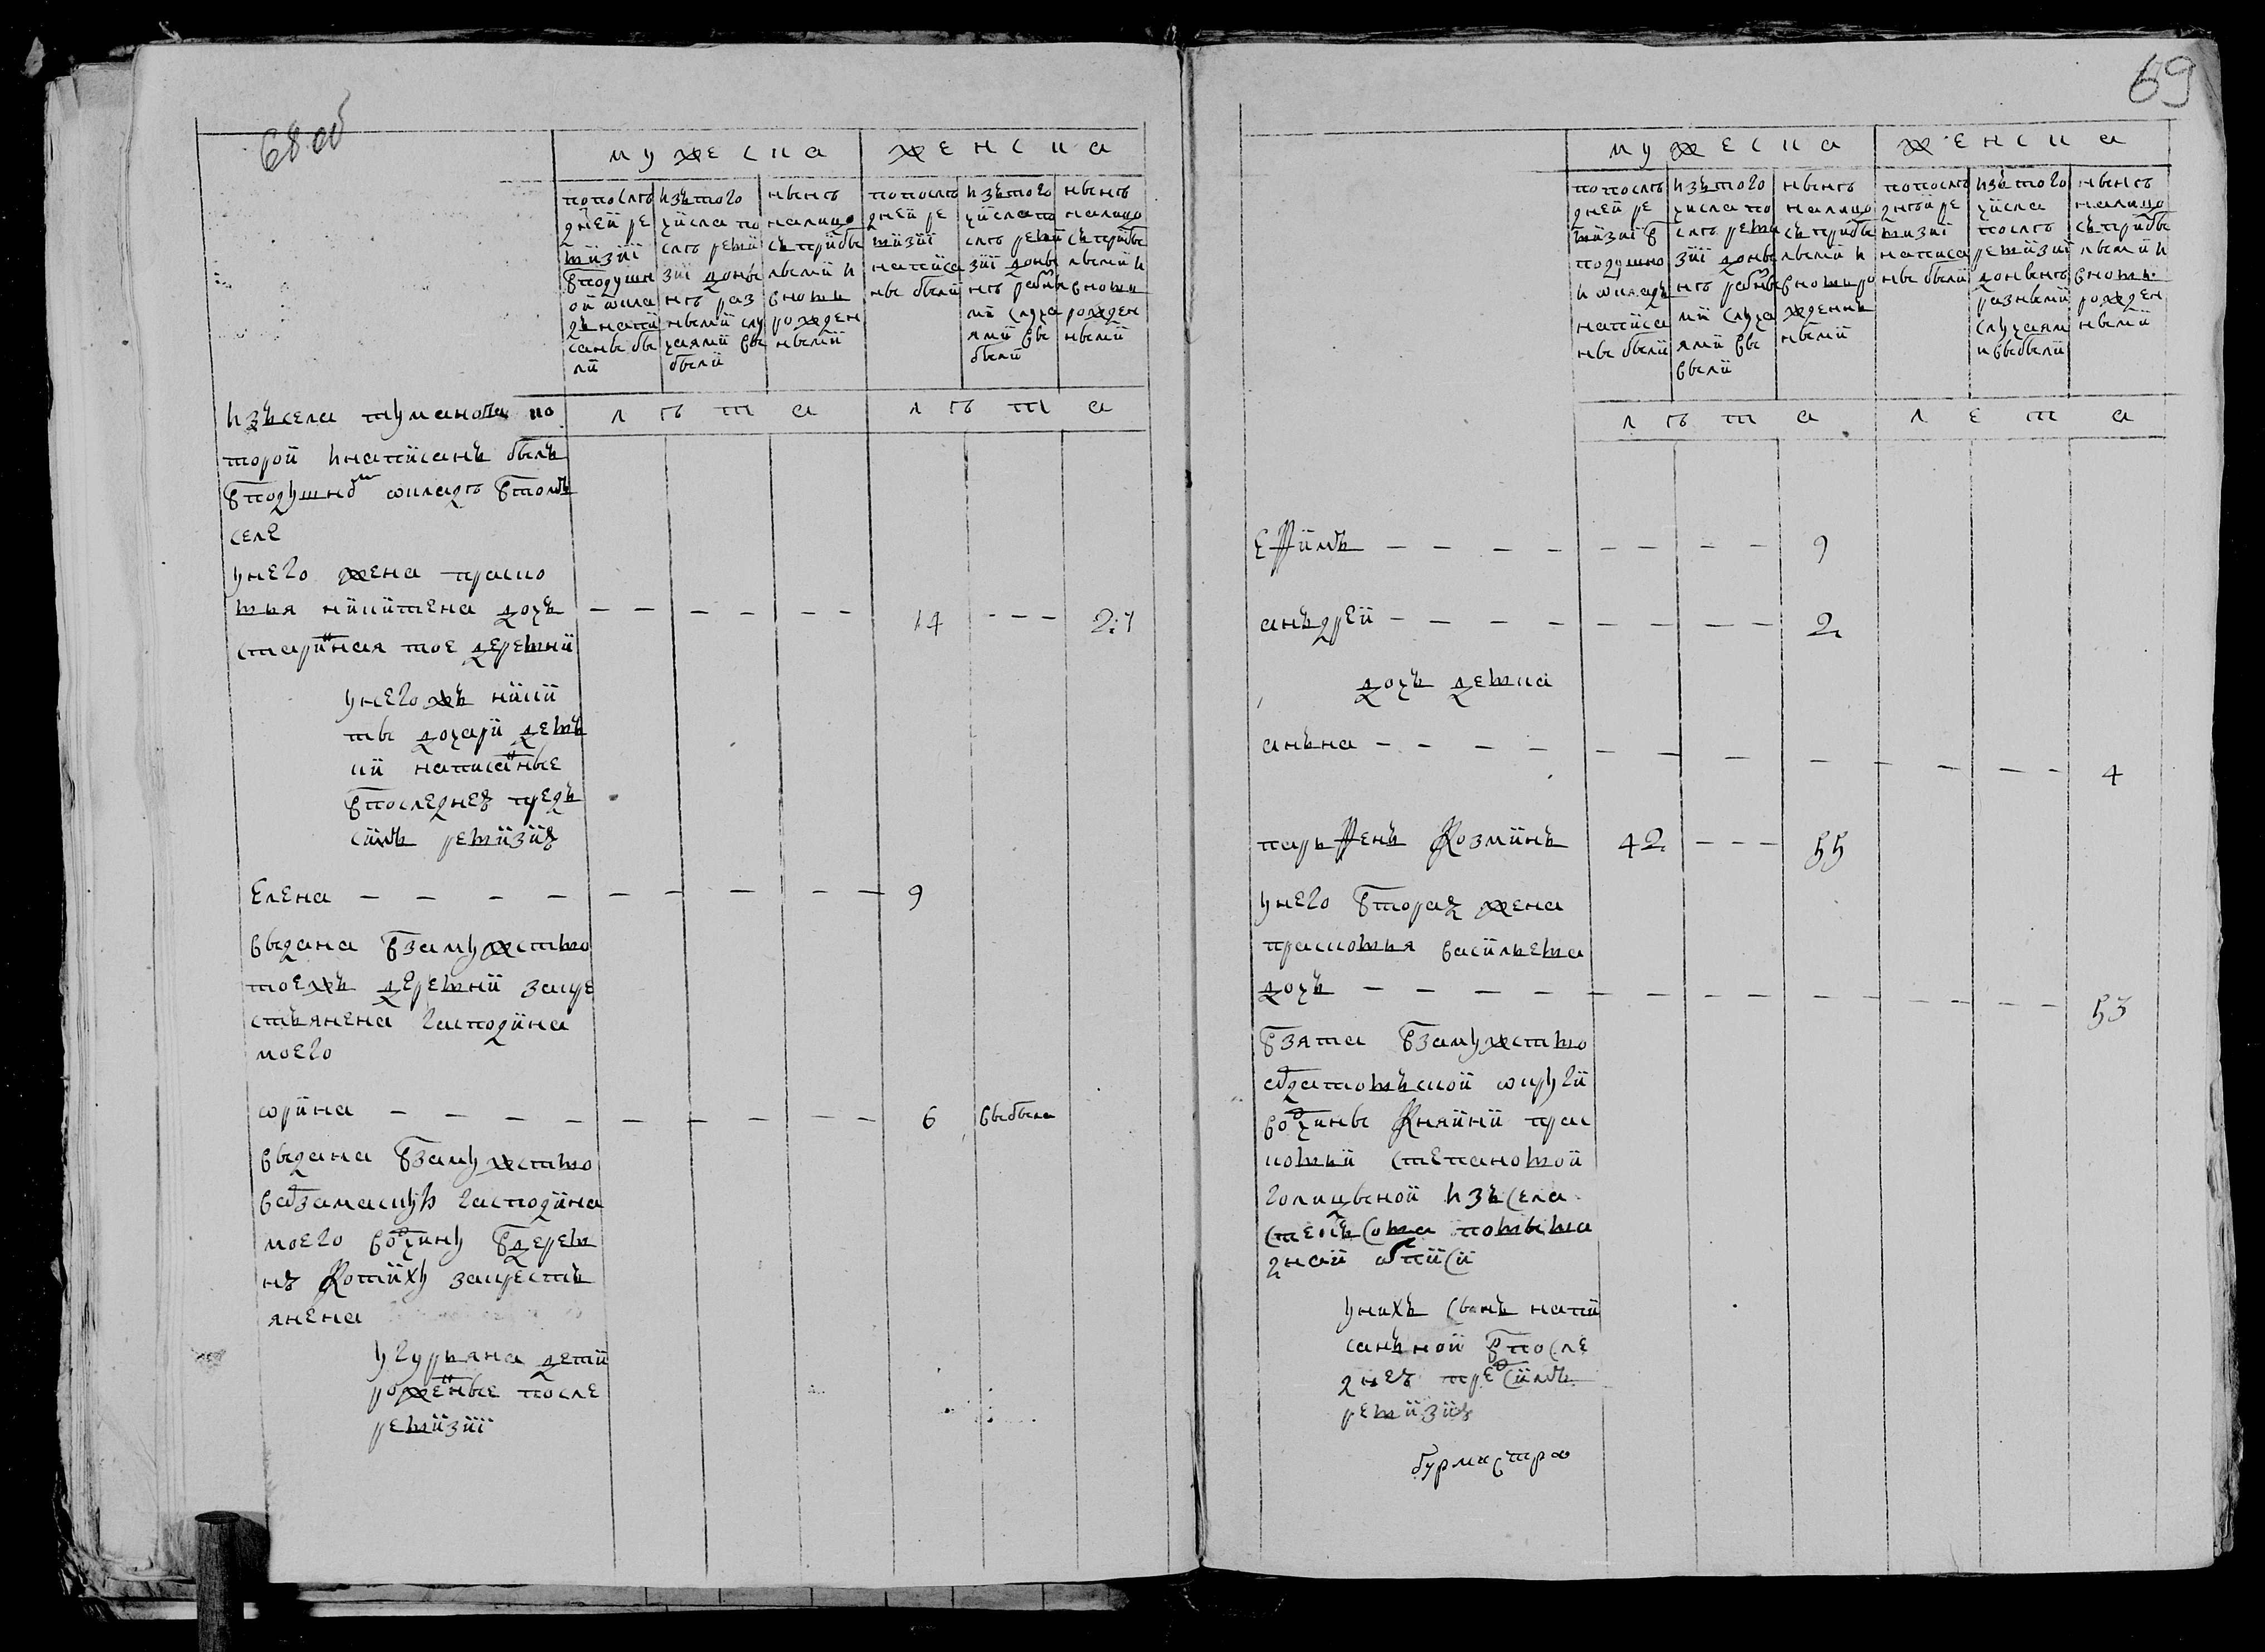 68 об
мужеска
женска
попослѣ
дней ре
визиї
вподушн
ой окла
дъ напи
саны бы
ли
изътого
числа по
слѣ реви
зиї доны
нѣ раз
ными слу
чаями вы
были
нынѣ
налицо
съ прибы
лыми и
вновь
рожден
ными
попослѣ
дней ре
визиї
написа
ны были
изътого
числа по
слѣ реви
зиї доны
нѣ разны
ми случа
ями вы
были
нынѣ
налицо
съ прибы
лыми и
вновь
рожден
ными
лѣта
лѣта
изъсела туманова ко
торой инаписанъ былъ
вподушномъ окладѣ втомъ
селе
унего жена праско
вья никитена дочъ
старинная тое деревни
14
27
унегожъ ники
ты дочери девъ
ки написанные
впоследнею предъ
симъ ревизию
Елена
9
выдана взамужство
тоежъ деревни закре
стьянена гасподина
моего
орина
6
выбыла
выдана взамужство
варзамаскую гасподина
моего вотчину вдерев
ню Котиху закресть
янена
угурьяна дети
рожденные после
ревизиї
69
мужеска
женска
попослѣ
дней ре
визиї в
подушно
й окладъ
написа
ны были
изътого
числа по
слѣ реви
зиї доны
нѣ разны
ми случа
ями вы
были
нынѣ
налицо
съ прибы
лыми и
вновь ро
жденн
ными
попослѣ
днѣй ре
визиї
написа
ны были
изътого
числа
послѣ
ревизиї
донынѣ
разными
случаям
и выбыли
нынѣ
налицо
съ прибы
лыми и
вновь
рожден
ными
лѣта
лета
ефимъ
9
анъдрей
2
дочъ девка
анъна
4
парьфенъ Козминъ
42
55
унего вторая жена
прасковья васильева
дочъ
53
взята взамужство
вотчины Княини прас
ковьи степановой
голицыной изъ села
унихъ сынъ напи
санъной впосле
днею предсимъ
ревизию
бурмистръ